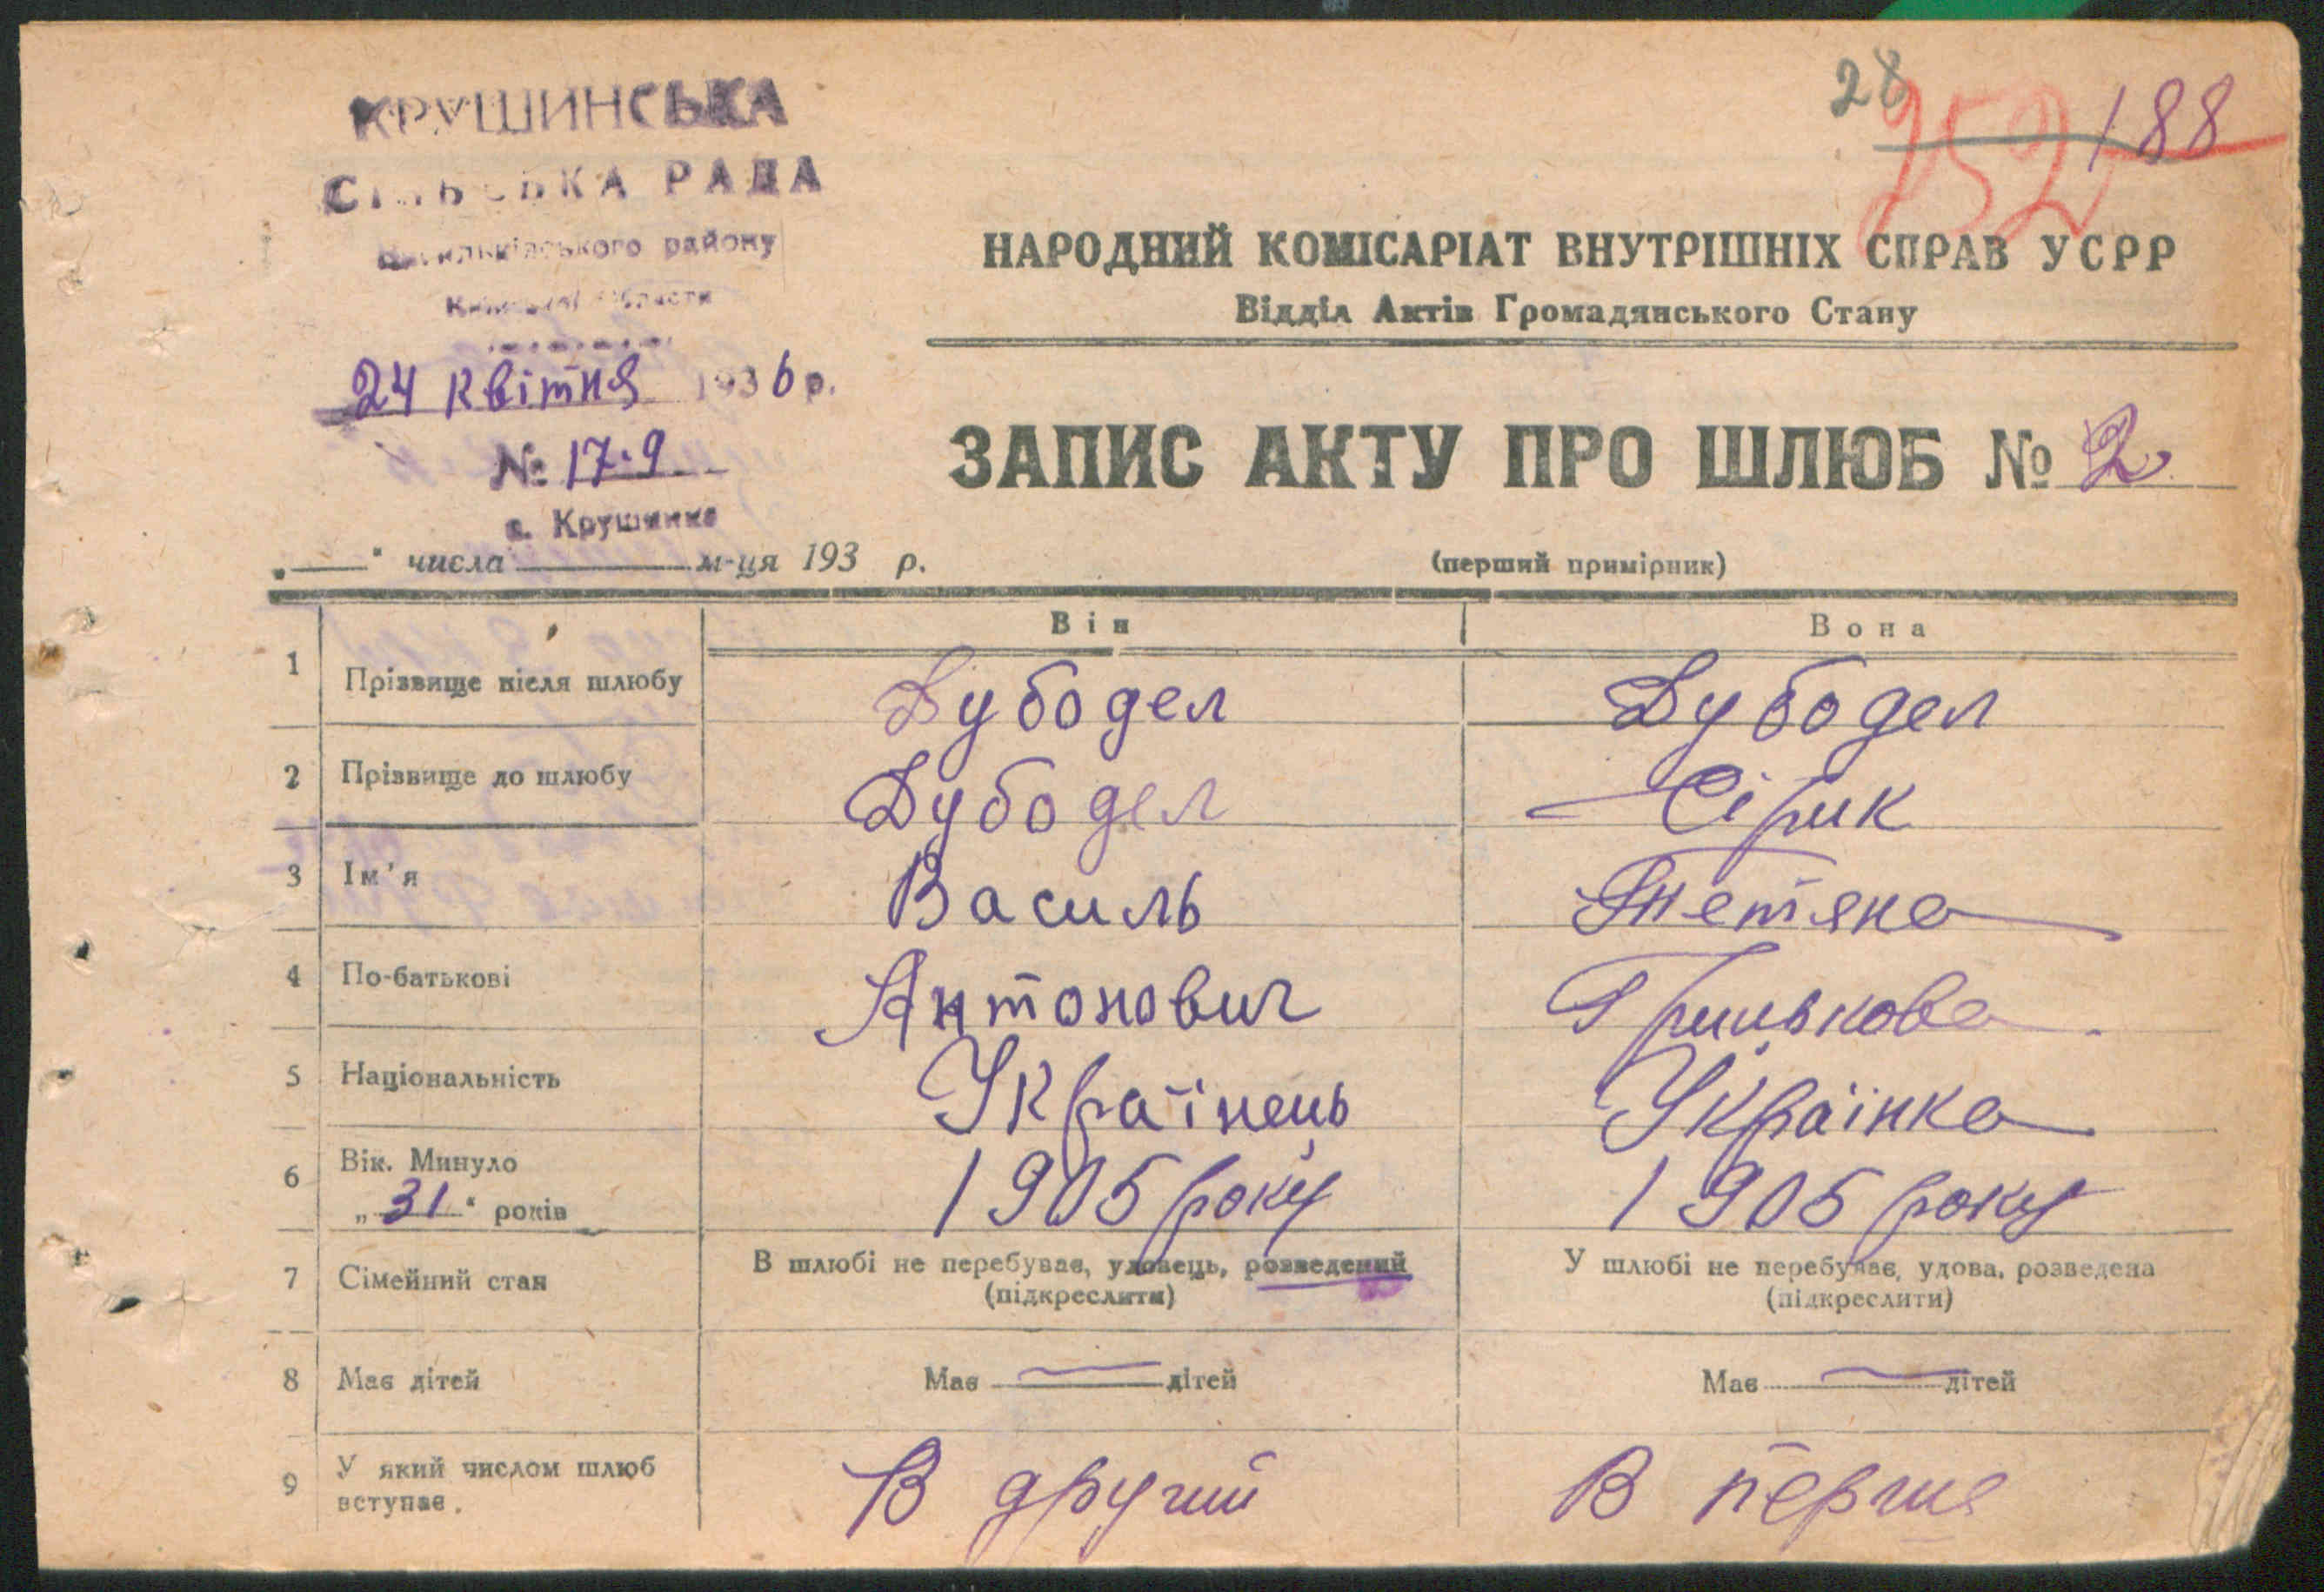 28
252
188
КРУШИНСЬКА
СІЛЬСЬКА РАДА
Васильківського району
Київської області
24 квітня 1936 р.
№ 17-9
с. Крушинка
НАРОДНИЙ КОМІСАРІАТ ВНУТРІШНІХ СПРАВ УСРР
Відділ Актів Громадянського Стану
ЗАПИС АКТУ ПРО ШЛЮБ № 2
„ “ числа м-ця 193 р.
(перший примірник)
Він Вона
1 Прізвище після шлюбу Дубодел Дубодел
2 Прізвище до шлюбу Дубодел Сірик
3 Ім'я Василь Тетяна
4 По-батькові Антонович Грицькова
5 Національність Українець Українка
6 Вік. Минуло „31“ років 1905 року 1905 року
7 Сімейний стан В шлюбі не перебуває, удовець, розведений У шлюбі не перебуває, удова, розведена
(підкреслити) (підкреслити)
8 Має дітей Має дітей Має дітей
9 У який числом шлюб вступає. В другий В перше